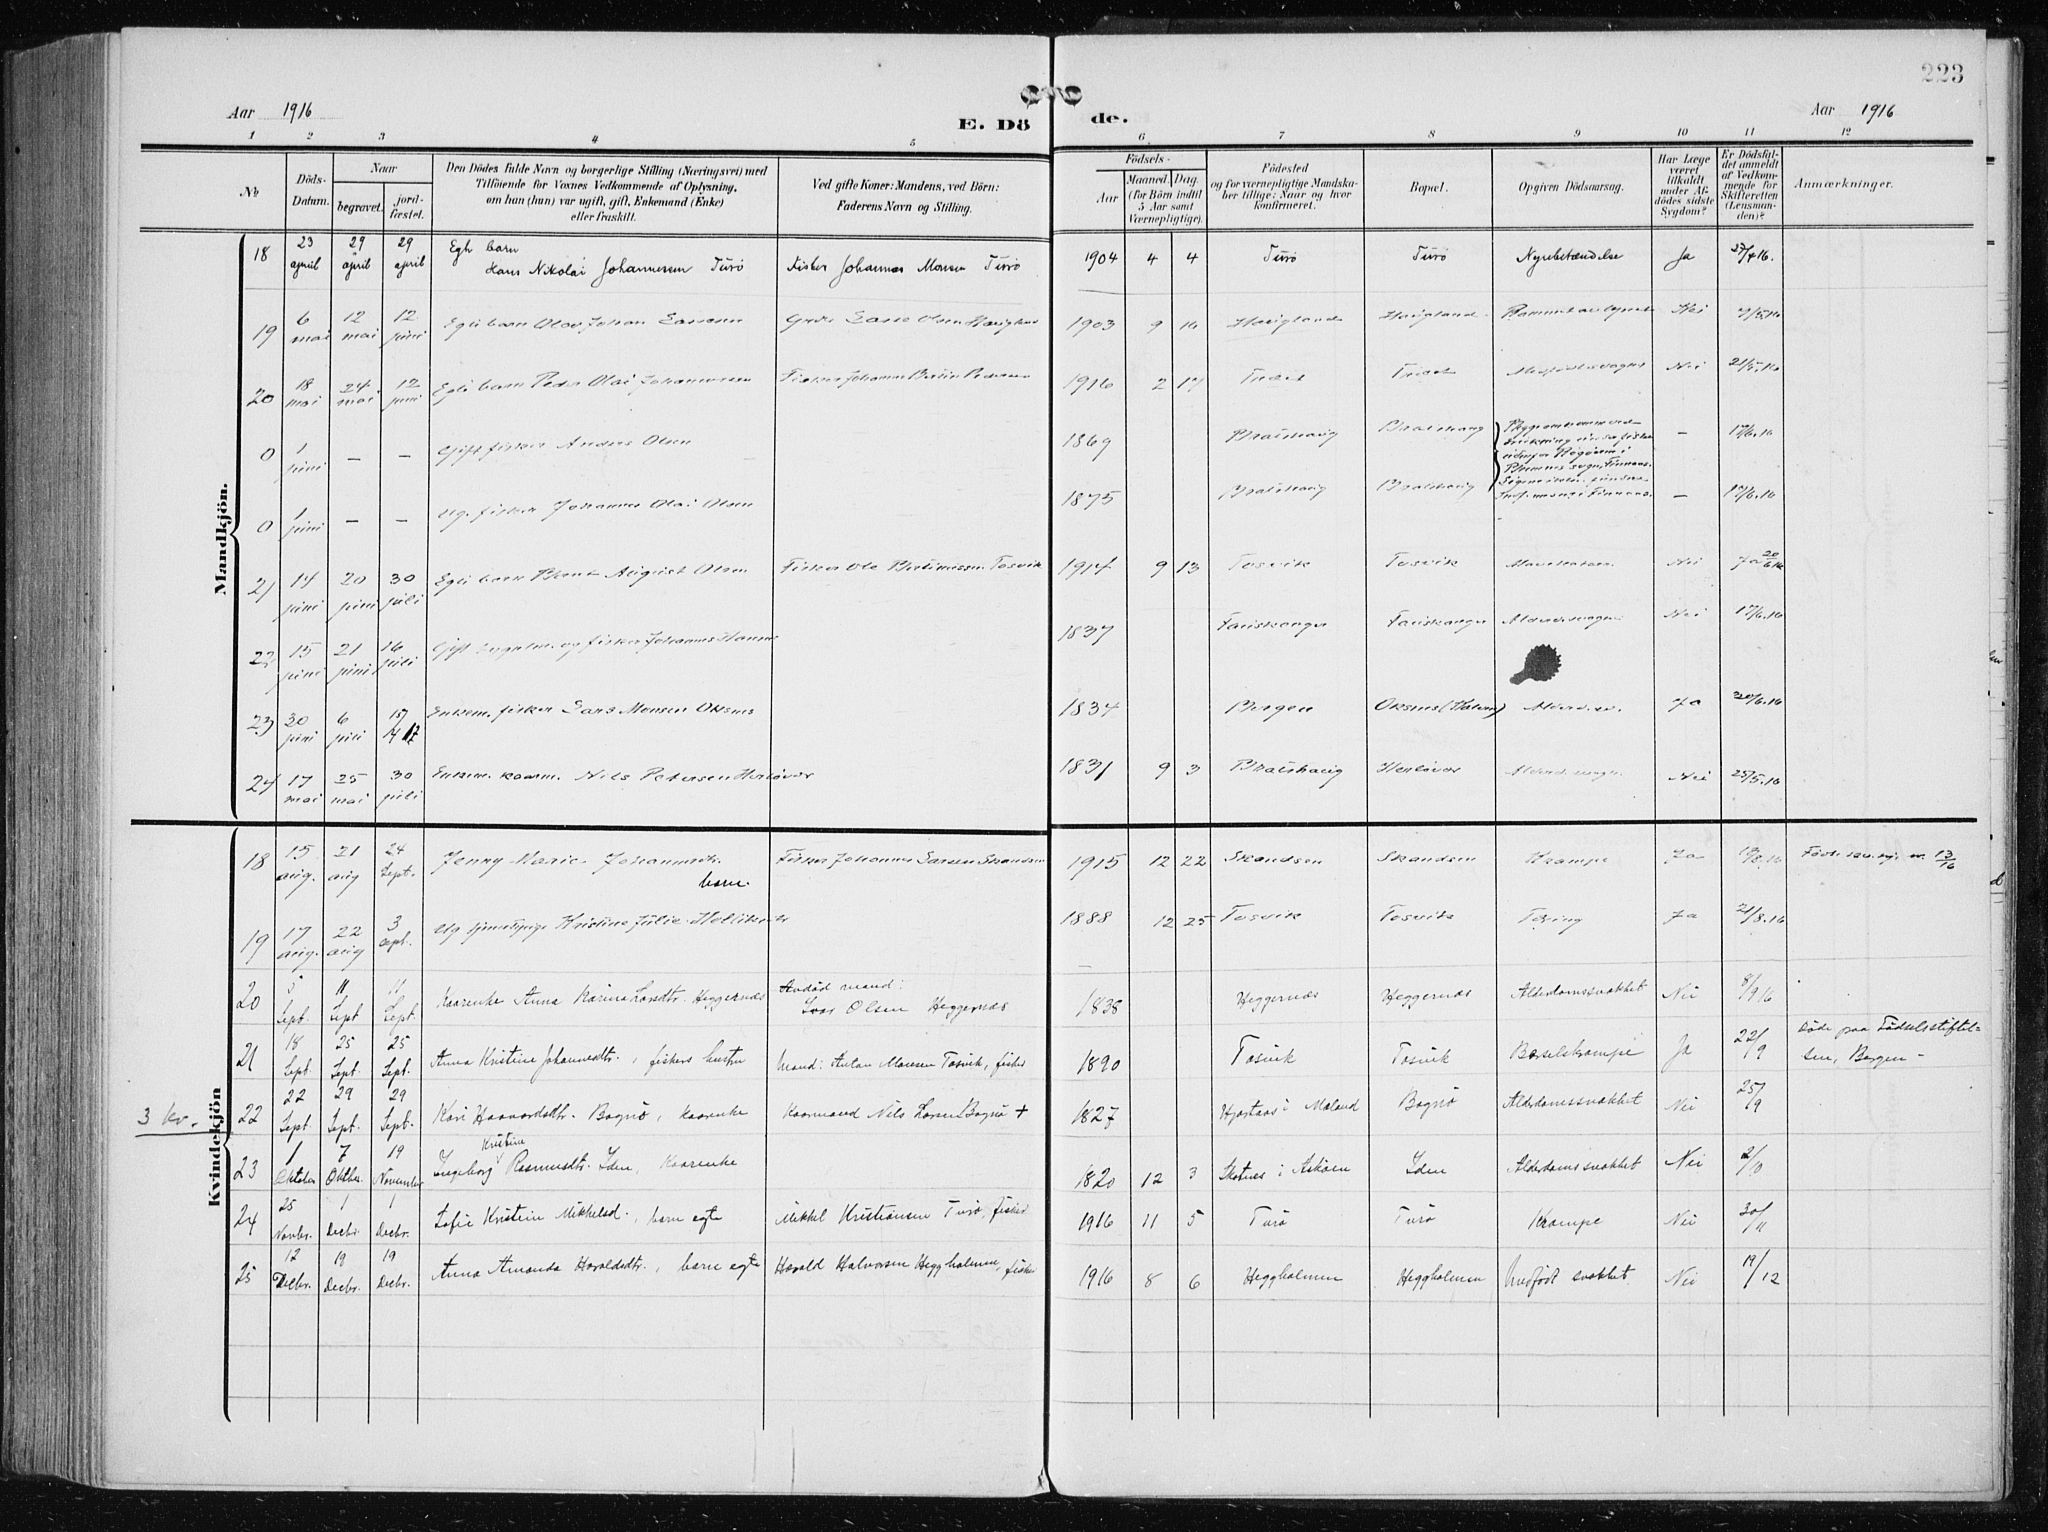 223
Aar 1916
E. Dö
de.
Aar 1916
1 2 3 4 5 6 7 8 9 10 11 12
№
Döds-Datum.
Naar
begravet.
jord-fæstet.
Den Dödes fulde Navn og borgerlige Stilling (Næringsvei) med
Tilföiende for Voxnes Vedkommende af Oplysning,
om han (hun) var ugift, gift, Enkemand (Enke)
eller fraskilt.
Ved gifte Koner: Mandens, ved Börn:
Faderens Navn og Stilling.
Födsels-
Aar
Maaned. Dag.
(for Börn indtil
5 Aar samt
Værnepligtige).
Födested
og for værnepligtige Mandska-
ber tillige: Naar og hvor
konfirmeret.
Bopæl.
Opgiven Dödsaarsag.
Har Læge
været
tilkaldt
under Af-
dödes sidste
Sygdom?
Er Dödsfal-
det anmeldt
af Vedkom-
mende for
Skifteretten
(Lensman-
den)?
Anmærkninger.
Mandkjön.
18 23 april 29 april 29 april Egte barn Hans Nikolai Johannessen Turö Fisker Johannes Monsen Turö 1904 4 4 Turö Turö Nyrebetændelse Ja 27/4 16.
19 6 mai 12 mai 12 juni Egte barn Olav Johan 1903 9 16 Nei 9/5.16
20 18 mai 24 mai 12 juni Egte barn Peder Olai Johannessen Fisker Johannes Pedersen 1916 2 17 Nei 21/5.16
0 1 juni — — Gift fisker Anders Olsen 1869 Bratshaug Bratshaug — 17/6.16
0 1 juni — — Ug. fisker Johannes Olai Olsen 1875 Bratshaug Bratshaug — 17/6.16
21 14 juni 20 juni 30 juli Egte barn August Olsen Fisker Ole Tosvik 1914 9 13 Tosvik Tosvik Nei Ja 20/6.16
22 15 juni 21 juni 16 juli Gift og fisker Johannes 1837 Nei 17/6.16
23 30 juni 6 juli 15/4 17 Enkem. fisker Lars Monsen Oksnes 1834 Bergen Oksnes Ja
24 17 mai 25 mai 30 juli Enkem. kaarm. Nils Petersen Herlövær 1831 9 3 Bratshaug Herlövær Nei 25/5.16
Kvindekjön
18 15 aug. 21 aug 24 Sept. Jenny Marie Johannesdtr. barn. Fisker Johannes Larsen Skandsen 1915 12 22 Skandsen Skandsen Krampe Ja 13/16
19 17 aug. 22 aug 3 sept. Ug tjenestepige Kristine Julie 1888 12 25 Tosvik Tosvik Tæring Ja 21/8.16
20 5 Sept. 11 Sept 11 Sept. Kaarenke Anna Karina Larsdtr. Heggernæs Avdöd mand: Ivar Olsen Heggernæs 1838 Heggernæs Heggernæs Alderdomssvakket Nei 8/9 16
21 18 Sept. 25 Sept. 25 Sept. Anna Kristine Johannesdtr., fiskers hustru Mand: Anton Monsen Tosvik, fisker 1890 Tosvik Tosvik Barselskrampe Ja 22/9 Döde paa Födselsstiftel-
sen, Bergen -
3 kv. 22 22 Sept. 29 Sept. 29 Sept. Kari Haavardsdtr. Bognö, kaarenke Kaarmand Nils Larsen Bognö + 1827 Hjertaas i Mæland Bognö Alderdomssvakket Nei 25/9
23 1 Oktober 7 Oktbr. 19 November Ingeborg Kristine Rasmusdtr. Iden, Kaarenke 1820 12 3 Skotnes i Askøen Iden Alderdomssvakket Nei 2/10
24 25 Novbr. 1 Decbr. 1 Decbr. Sofie Kristine Mikkelsd., barn egte Mikkel Kristiansen Turö, fisker 1916 11 5 Turö Turö Krampe Nei 30/11
25 12 Decbr. 19 Decbr. 19 Decbr. Anna Amanda Haraldsdtr., barn egte Harald Halvorsen Heggholmen, fisker 1916 8 6 Heggholmen Heggholmen Medfødt svakket Nei 19/12